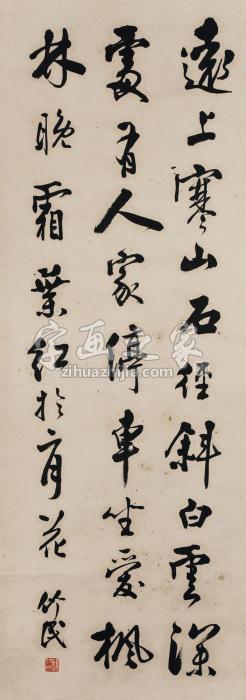 遠上寒山石径斜白雲深
處有人家停車坐愛楓
林晚霜葉紅於二月花
竹民
字画之家
zihuazhijia.com